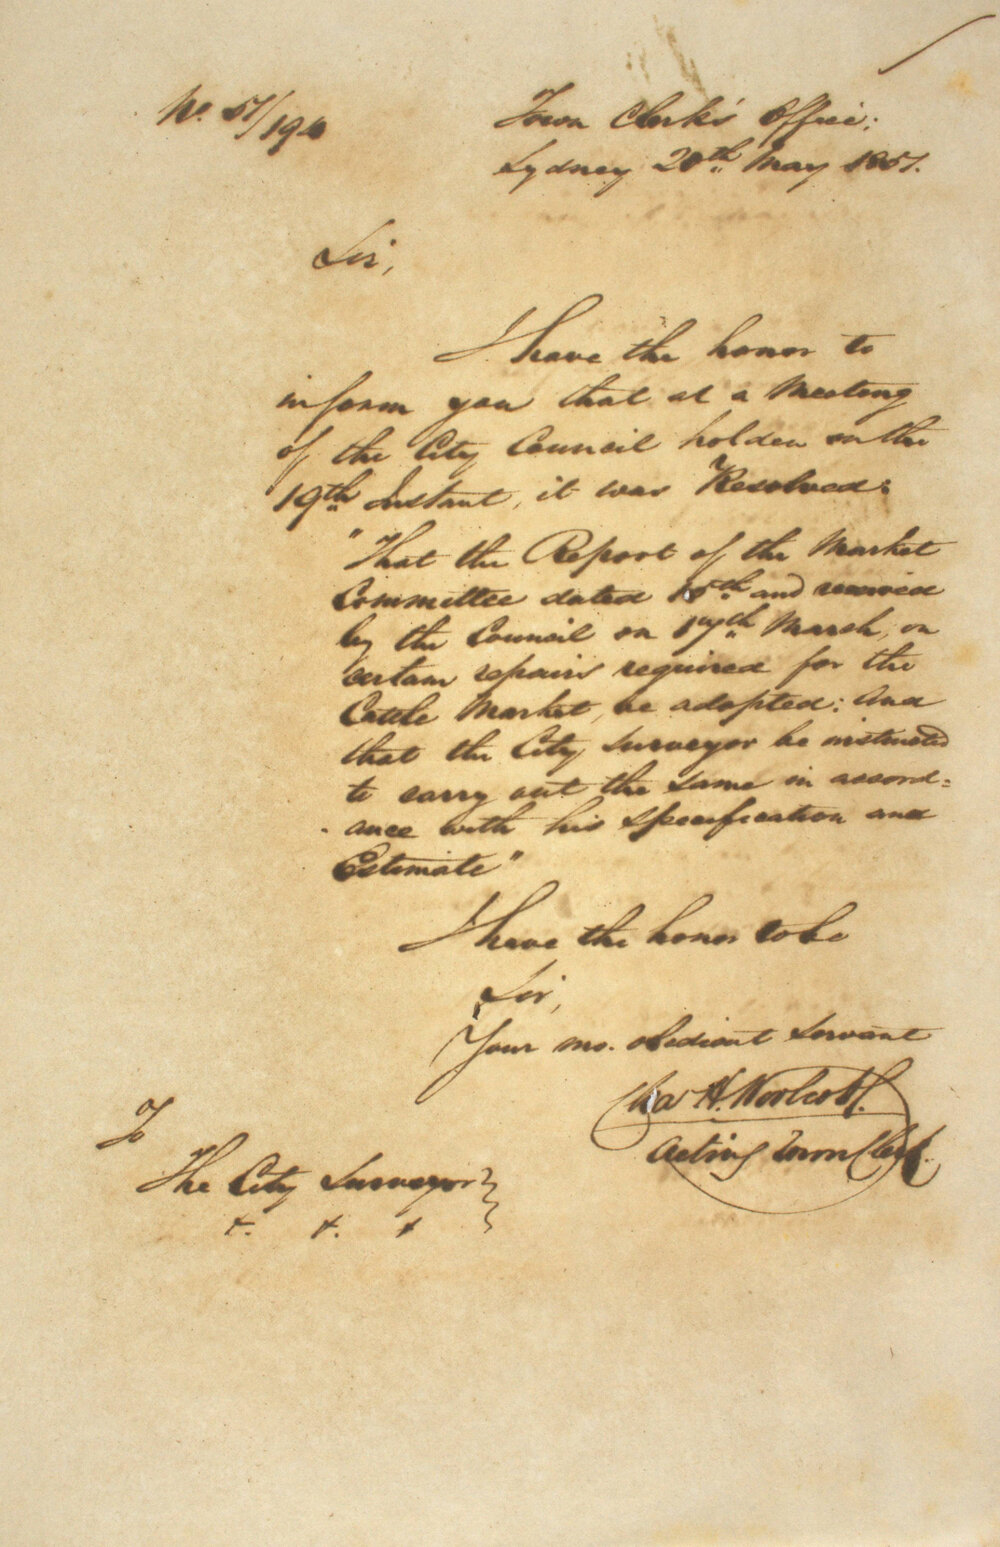 No. 51/190
Town Clerk's Office:
Sydney 20th May 1851.
Sir,
I have the honor to
inform you that at a Meeting
of the City Council holden on the
19th Instant, it was Resolved:
"That the Report of the Market
Committee dated 15th and received
by the Council on 17th March, on
certain repairs required for the
Cattle Market, be adopted: And
that the City Surveyor be instructed
to carry out the same in accord=
ance with his Specification and
Estimate"
I have the honor to be
Sir,
Your mo. obedient Servant
Chas H. Woolcott.
Acting Town Clerk.
To
The City Surveyor